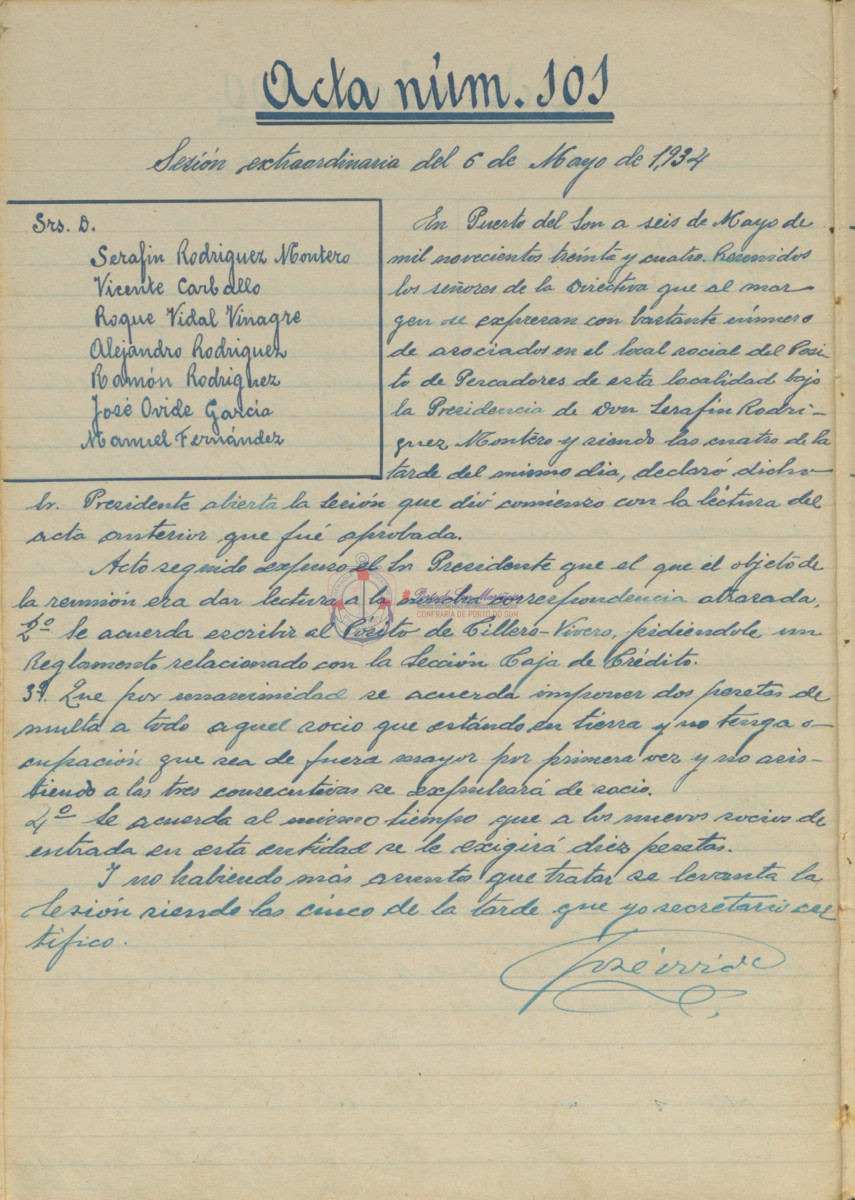 Acta núm. 101
Sesión extraordinaria del 6 de Mayo de 1,934
Srs. D.
Serafin Rodriguez Montero
Vicente Carballo
Roque Vidal Vinagre
Alejandro Rodriguez
Ramón Rodriguez
José Ovide García
Manuel Fernández
En Puerto del Son a seis de Mayo de
mil novecientos treinta y cuatro. Reunidos
los señores de la Directiva que al mar-
gen se expresan con bastante número
de asociados en el local social del Posi-
to de Pescadores de esta localidad bajo
la Presidencia de Don Serafin Rodri-
guez Montero y siendo las cuatro de la
tarde del mismo dia, declaró dicho
Sr. Presidente abierta la Sesión que dió comienzo con la lectura del
acta anterior que fué aprobada.
Acto seguido expuso el Sr Presidente que el que el objeto de
la reunión era dar lectura a la mucha correspondencia atrasada,
2º Se acuerda escribir al Pósito de Cillero-Vivero, pidiéndole un
Reglamento relacionado con la Sección Caja de Crédito.
3º. Que por unanimidad se acuerda imponer dos pesetas de
multa a todo aquel socio que estándo en tierra y no tenga o-
cupación que sea de fuera mayor por primera vez y no asis-
tiendo a las tres consecutivas se expulsará de socio.
4º Se acuerda al mismo tiempo que a los nuevos socios de
entrada en esta entidad se le exigirá diez pesetas.
I no habiendo más asuntos que tratar se levanta la
Sesión siendo las cinco de la tarde que yo secretario cer
tifico.
José Ovide
CONFRARÍA DE PORTO DO SON